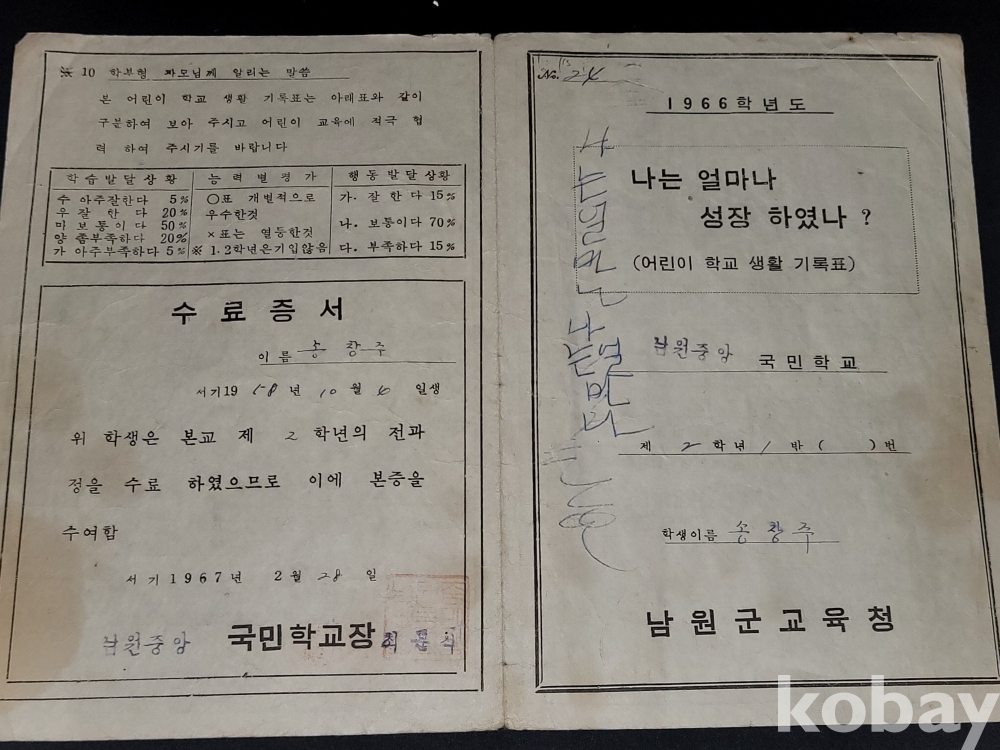 ※ 10 학부형 짜모님께 알리는 말씀
본 어린이 학교 생활 기록표는 아래표와 같이
구분하여 보아 주시고 어린이 교육에 적극 협
력 하여 주시기를 바랍니다
학습발달상황 능력별평가 행동발달상황
수 아주잘한다 5% ○표 개별적으로 가. 잘 한다 15%
우 잘 한 다 20% 우수한것
미 보통이다 50% ×표는 열등한것 나. 보통이다 70%
양 좀부족하다 20%
가 아주부족하다 5% ※ 1.2학년은기입않음 다. 부족하다 15%
수료증서
이름 송창주
서기19 58년 10월 6 일생
위 학생은 본교 제 2 학년의 전과
정을 수료 하였으므로 이에 본증을
수여함
서기 1967년 2월 28 일
남원중앙 국민학교장
No. 24
1966학년도
나는 얼마나
성장 하였나 ?
(어린이 학교 생활 기록표)
남원중앙 국민학교
제 2 학년 1 반 ( ) 번
학생이름 송창주
남원군교육청
kobay